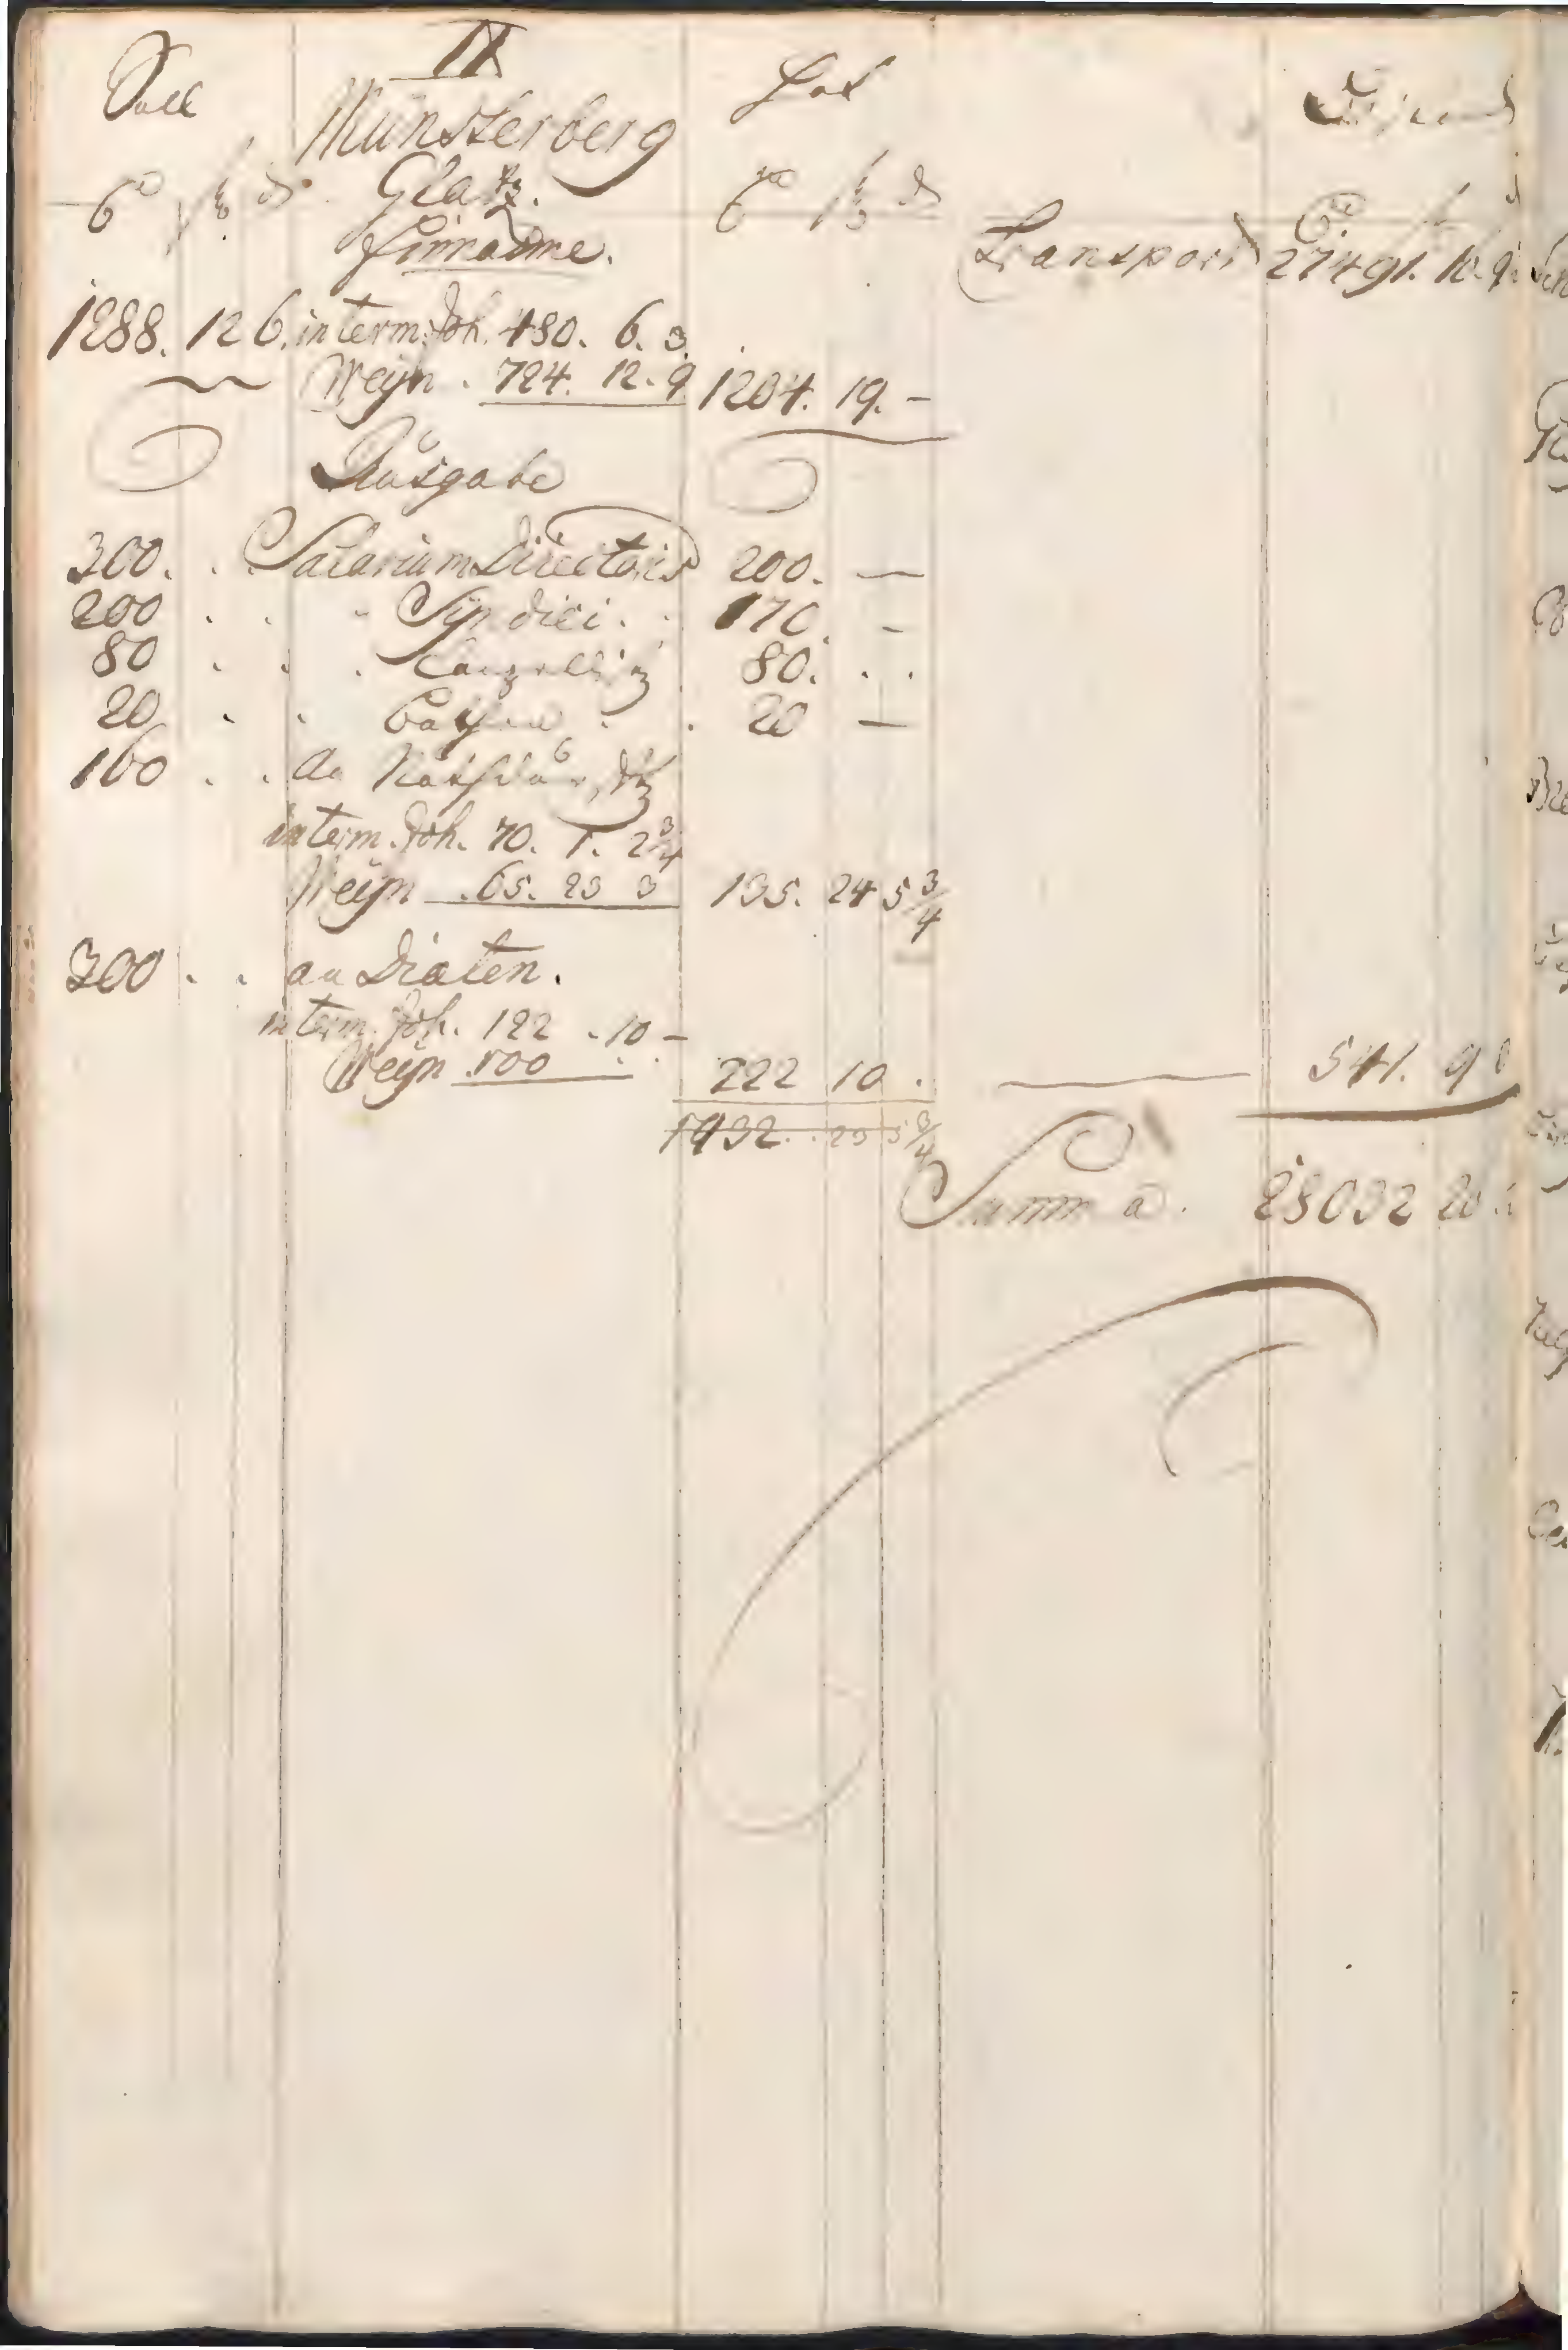 Soll II Hat
Münsterberg
Glatz.
Einnahme.
Transport 27491. 10. 9.
1288. 12 6. in term. Joh. 480. 6. 3.
Weyn. 724. 12. 9 1204. 19. -
Ausgabe
300. Salarium Directoris 200. -
200 Syndici. 170. -
80 80.
20 20 -
160
in term. Joh. 70. 1. 2 3/4
Weyn 65. 23 3 135. 24 5 3/4
300 an Diaeten.
in term. Joh. 122. 10 -
Weyn 100 222 10. 541. 9
1932. 23 5 3/4
Summa. 28032 20